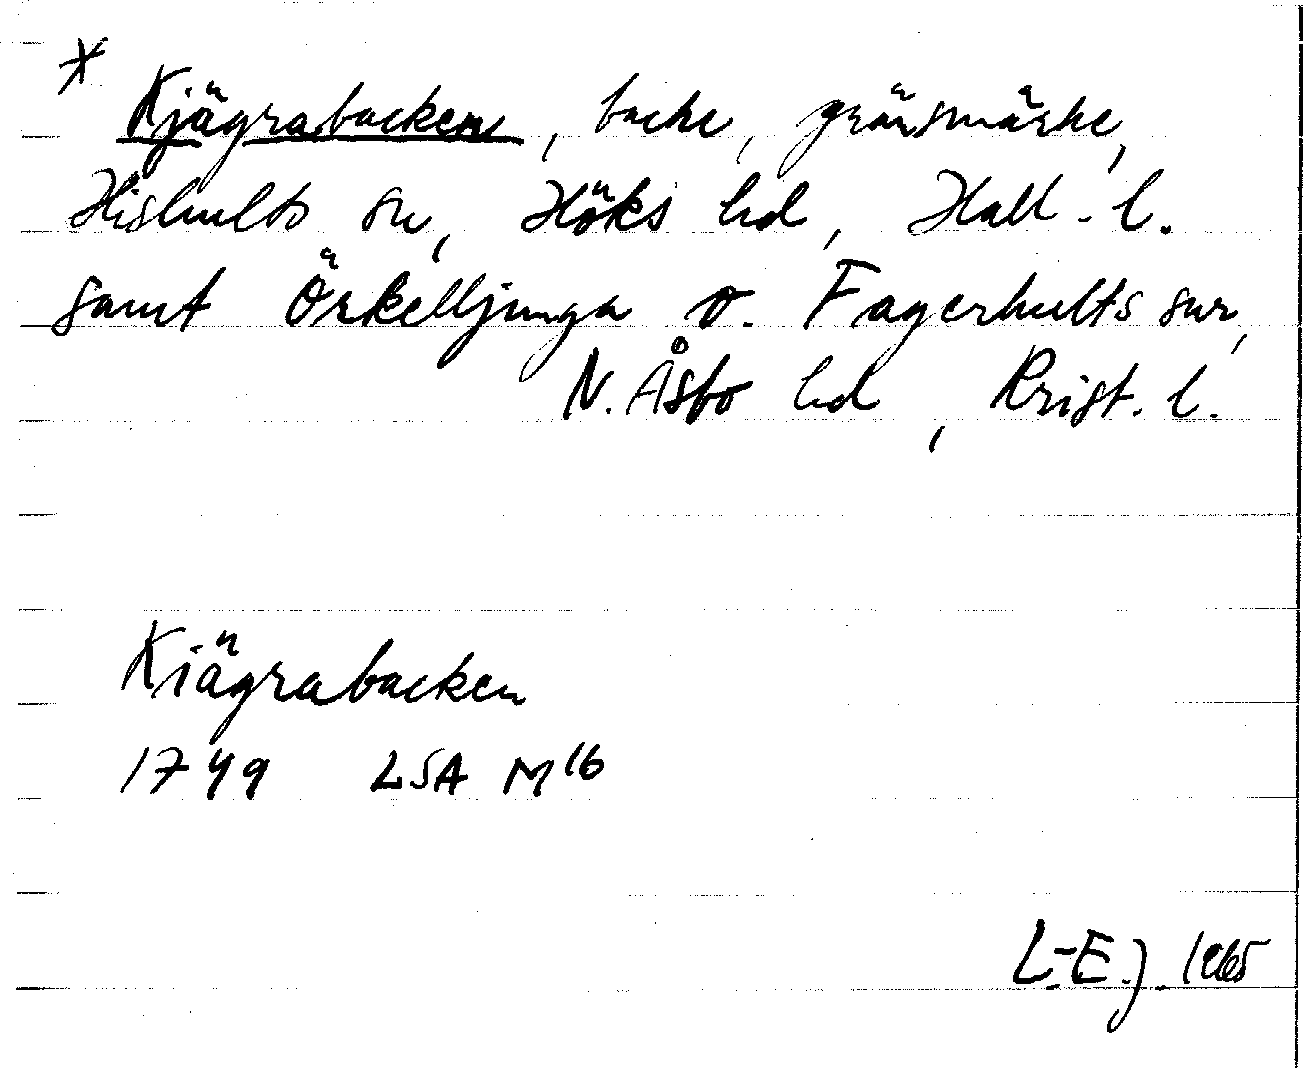 * Kjägrabacken, backe, gränsmärke,
Hishults sn, Höks hd, Hall. l.
samt Örkelljunga o. Fagerhults snr,
N. Åsbo hd, Krist. l.
Kiägrabacken
1749 LSA M16
L-E.J. 1965